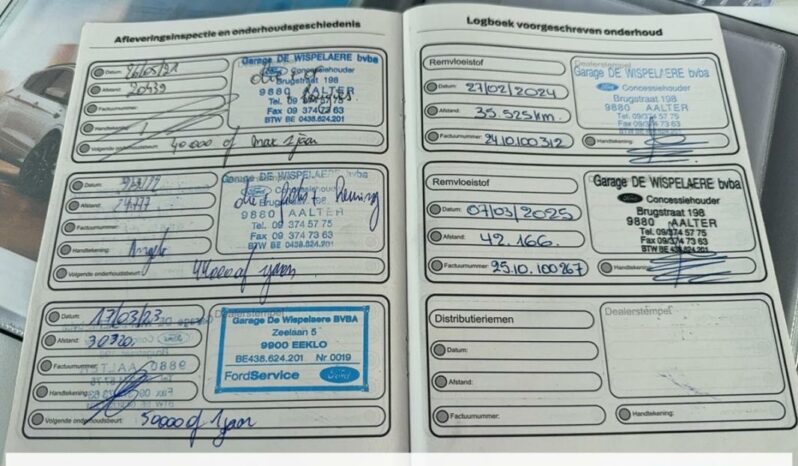 Afleveringsinspectie en onderhoudsgeschiedenis
Datum: 26/05/21
Afstand: 20439
Factuurnummer:
Handtekening:
Volgende onderhoudsbeurt: 40000 of max 1 jaar
Garage DE WISPELAERE bvba
Ford Concessiehouder
Brugstraat 198
9880 AALTER
Tel. 09 374 57 75
Fax 09 374 73 63
BTW BE 0438.624.201
Datum:
Afstand:
Factuurnummer:
Handtekening:
Volgende onderhoudsbeurt: 44000 of jaar
Garage DE WISPELAERE bvba
Ford Concessiehouder
Brugstraat 198
9880 AALTER
Tel. 09 374 57 75
Fax 09 374 73 63
BTW BE 0438.624.201
Datum: 17/03/23
Afstand: 30320
Factuurnummer:
Handtekening:
Volgende onderhoudsbeurt: 50000 of 1 jaar
Dealerstempel
Garage De Wispelaere BVBA
Zeelaan 5
9900 EEKLO
BE438.624.201 Nr 0019
FordService Ford
Logboek voorgeschreven onderhoud
Remvloeistof
Datum: 27/02/2024
Afstand: 35.525km.
Factuurnummer: 24.10.100312
Dealerstempel
Garage DE WISPELAERE bvba
Ford Concessiehouder
Brugstraat 198
9880 AALTER
Tel. 09/374 57 75
Fax 09/374 73 63
BTW BE 0438.624.201
Handtekening:
Remvloeistof
Datum: 07/03/2025
Afstand: 42.166.
Factuurnummer: 25.10.100267
Garage DE WISPELAERE bvba
Ford Concessiehouder
Brugstraat 198
9880 AALTER
Tel. 09/374 57 75
Fax 09/374 73 63
BTW BE 0438.624.201
Handtekening:
Distributieriemen
Datum:
Afstand:
Factuurnummer:
Dealerstempel
Handtekening: